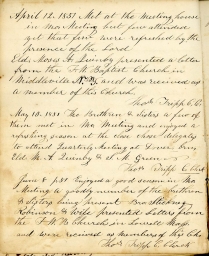 April 12. 1851 Met at the Meeting house
in Mo Meeting but few attended
yet that few were refreshed by the
presence of the Lord
Eld. Moses A. Quinby presented a letter
from the F. W. Baptist Church in
and was received as
a member of this Church.
Thos Tripp C. C.
May 10. 1851 The Brethren & sisters a few of
them met in Mo Meeting and enjoyed a
refreshing season at the close chose delegates
to attend Quarterly Meeting at
Eld M. A. Quinby & S. M. Green
Thos Tripp C. Clerk
June 8. 1851 Enjoyed a good season in Mo
Meeting a goodly number of the Brethren
& Sisters being present Bro
Robinson & Wife presented Letters from
the F. W. B. Church in Lowell Mass
and were received as members of this Chh
Thos Tripp C. Clerk